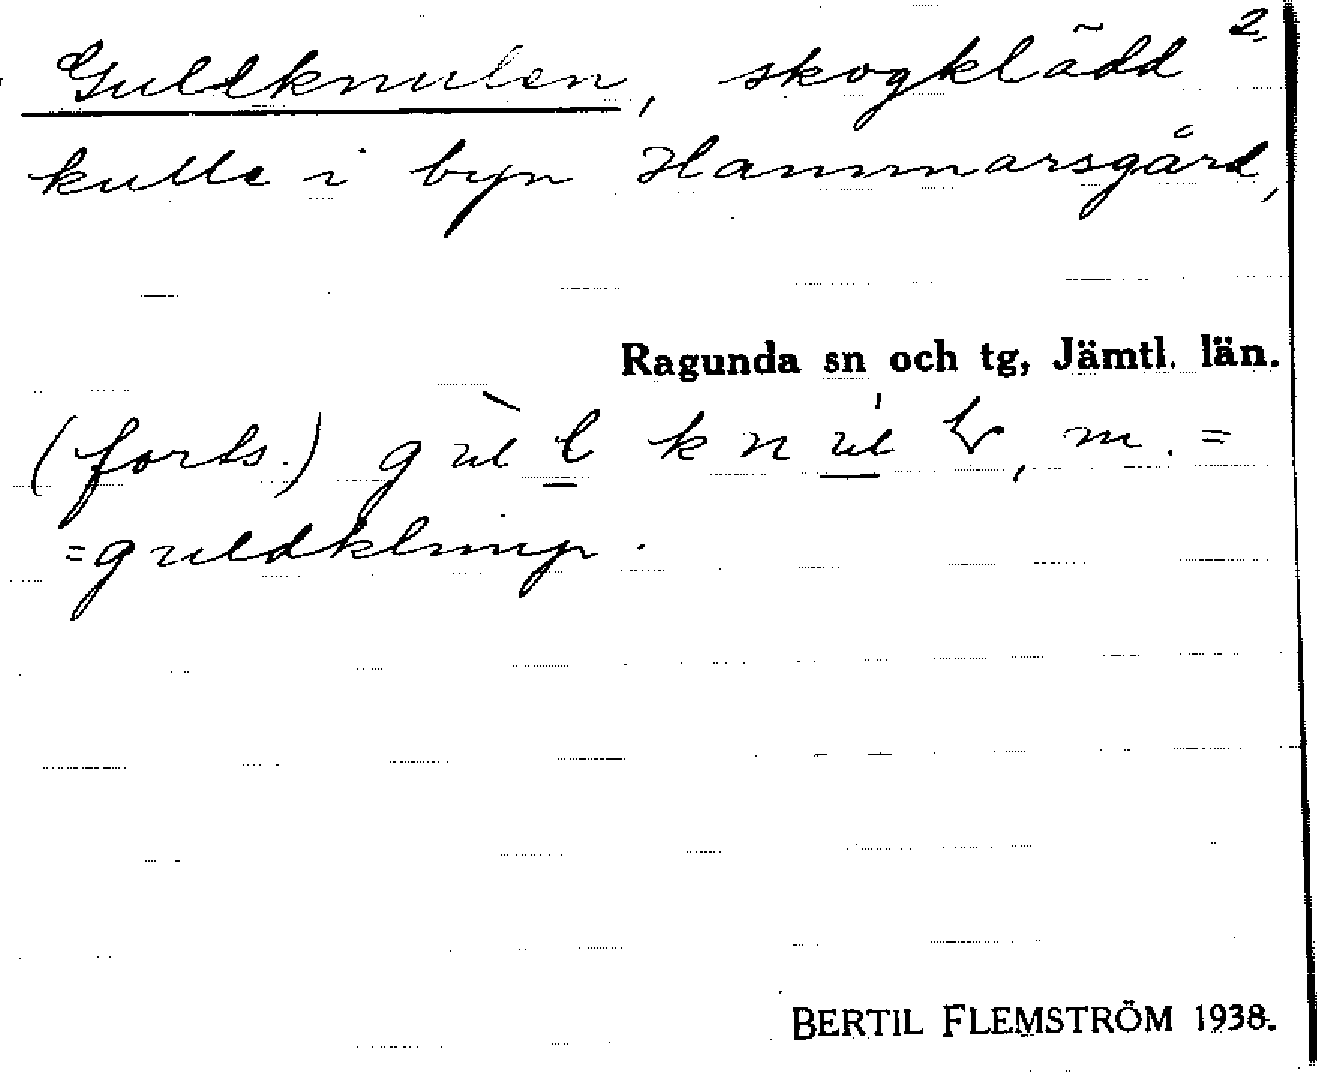 Guldknulen, skogklädd 2.
kulle i byn Hammarsgård,
Ragunda sn och tg, Jämtl. län.
(forts.) m. =
=guldklimp.
BERTIL FLEMSTRÖM 1938.